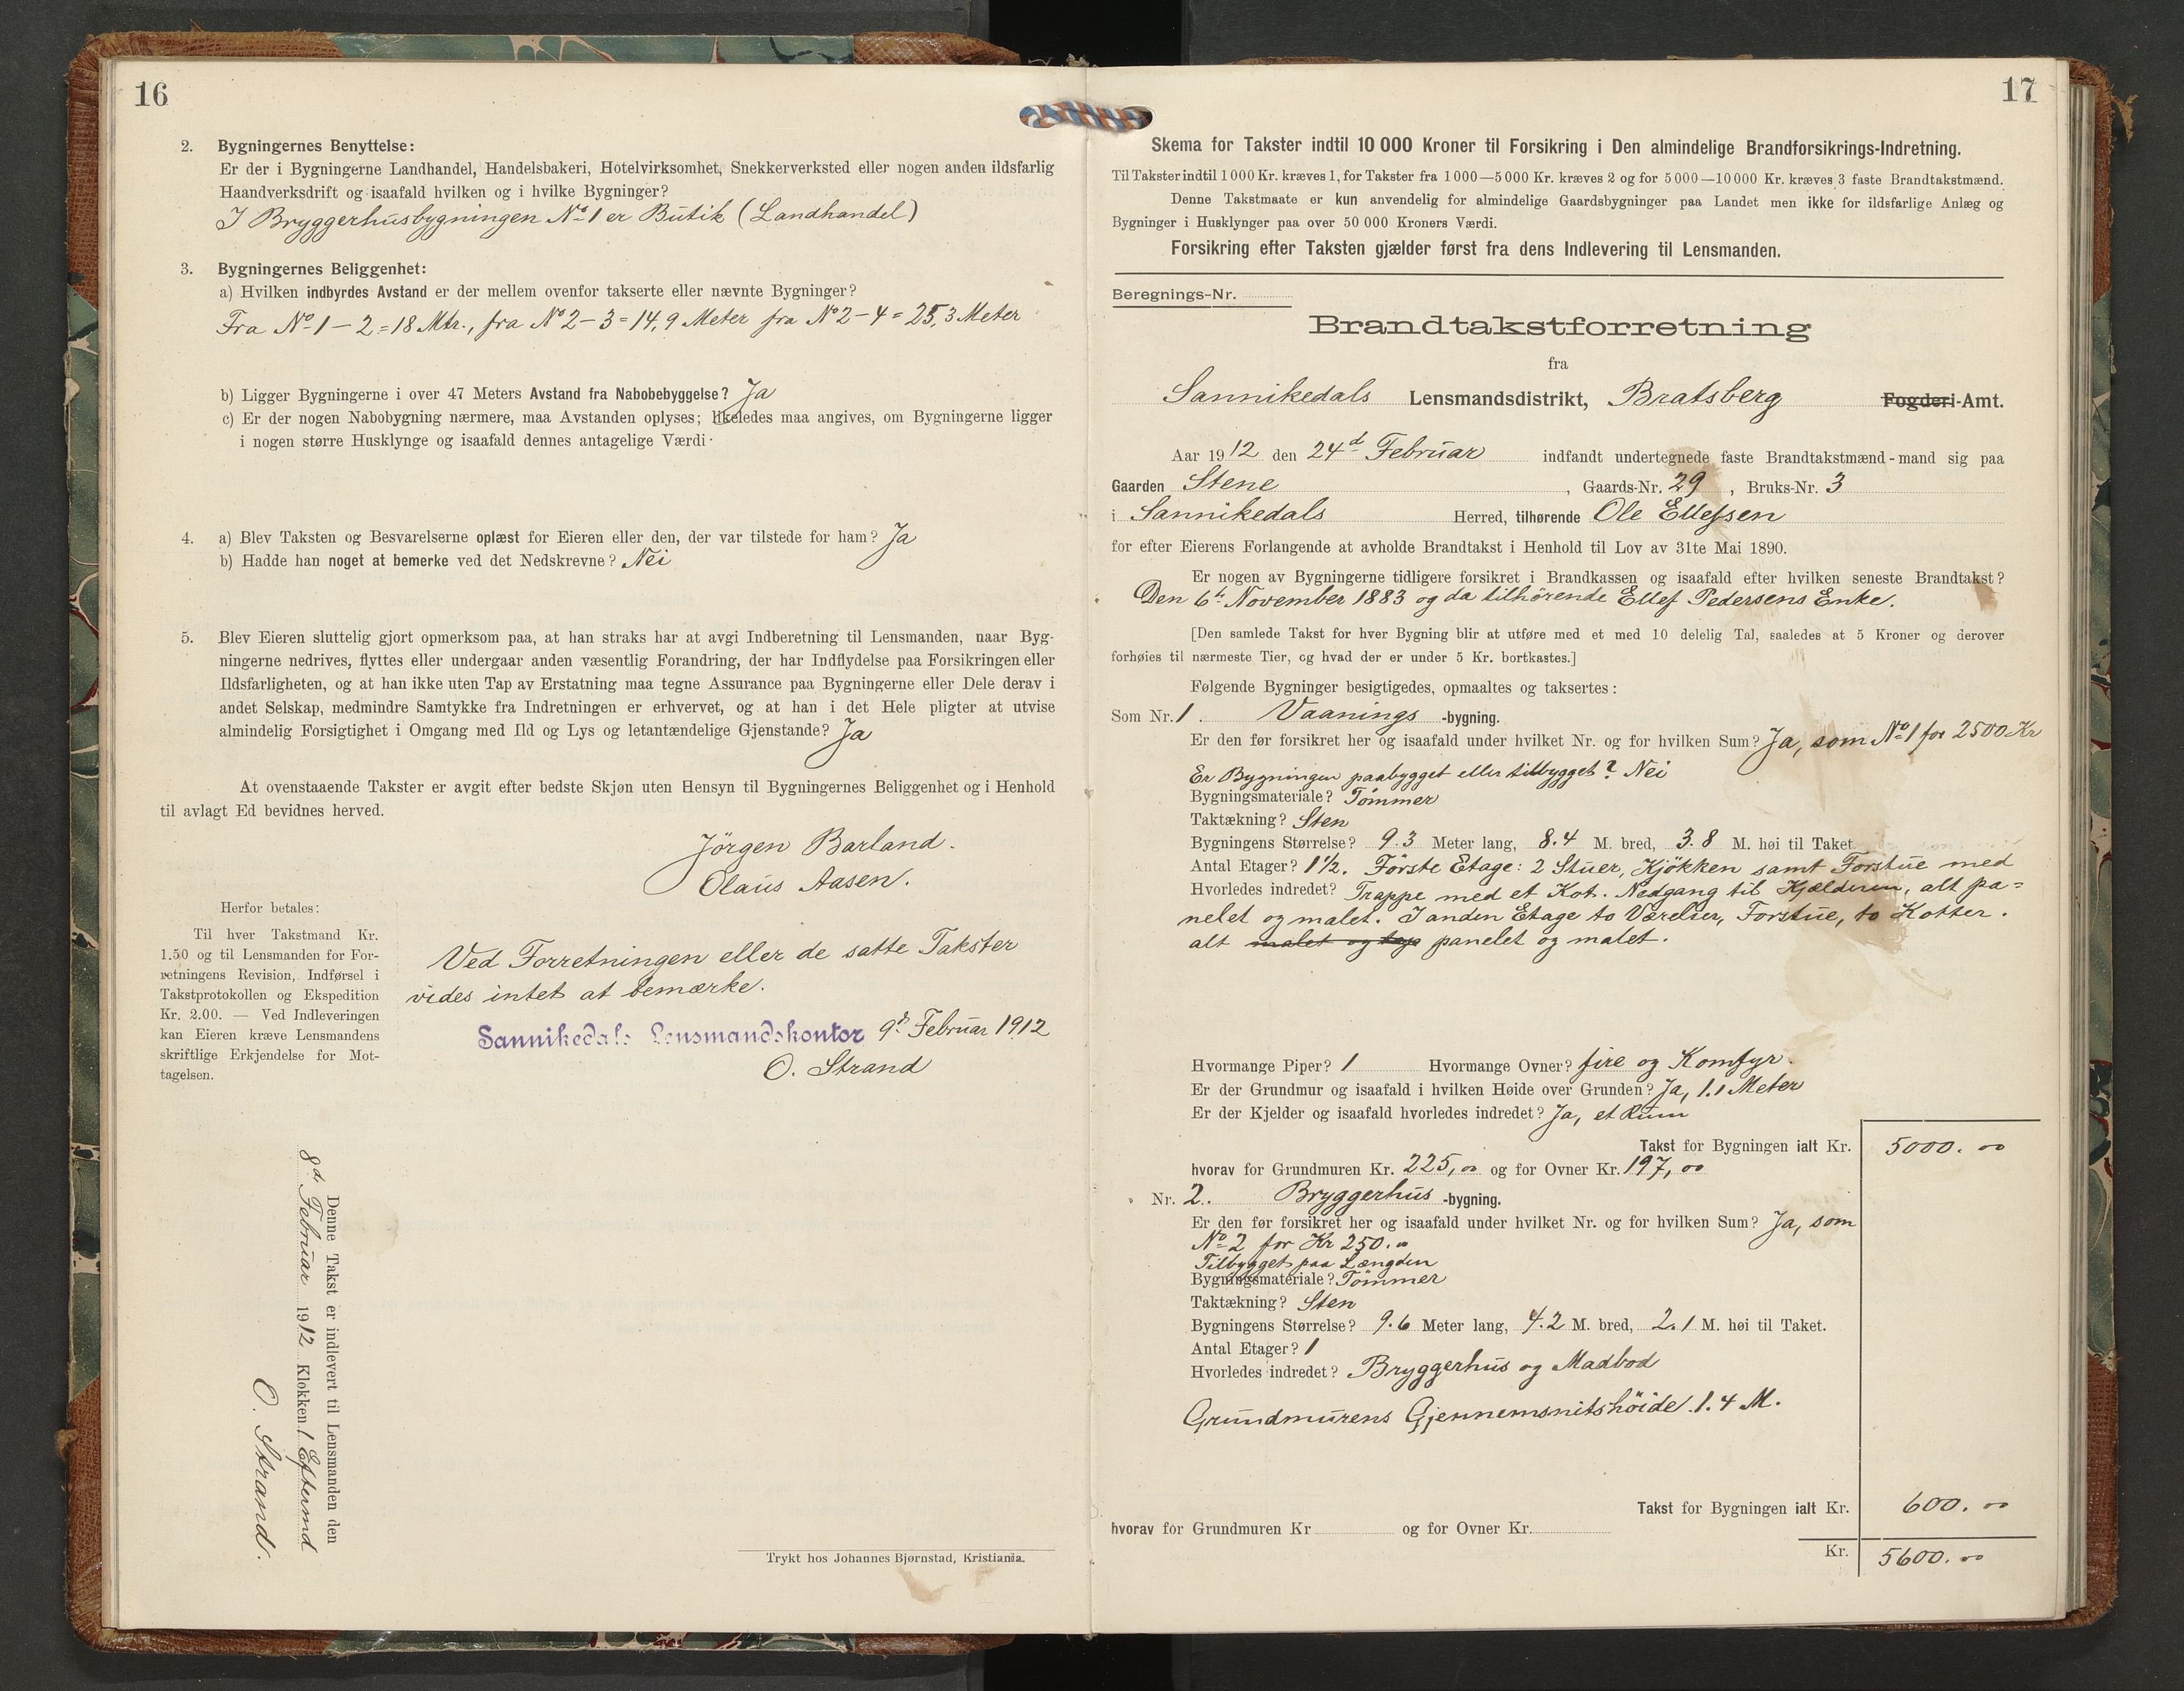 16
2. Bygningernes Benyttelse:
Er der i Bygningerne Landhandel, Handelsbakeri, Hotelvirksomhet, Snekkerverksted eller nogen anden ildsfarlig
Haandverksdrift og isaafald hvilken og i hvilke Bygninger?
I Bryggerhusbygningen No 1 er Butik (Landhandel)
3. Bygningernes Beliggenhet:
a) Hvilken indbyrdes Avstand er der mellem ovenfor takserte eller nævnte Bygninger?
Fra No 1 – 2 = 18 Mtr., fra No 2 – 3 = 14,9 Meter fra No 2 – 4 = 25,3 Meter
b) Ligger Bygningerne i over 47 Meters Avstand fra Nabobebyggelse? Ja
c) Er der nogen Nabobygning nærmere, maa Avstanden oplyses; likeledes maa angives, om Bygningerne ligger
i nogen større Husklynge og isaafald dennes antagelige Værdi.
4. a) Blev Taksten og Besvarelserne oplæst for Eieren eller den, der var tilstede for ham? Ja
b) Hadde han noget at bemerke ved det Nedskrevne? Nei
5. Blev Eieren sluttelig gjort opmerksom paa, at han straks har at avgi Indberetning til Lensmanden, naar Byg-
ningerne nedrives, flyttes eller undergaar anden væsentlig Forandring, der har Indflydelse paa Forsikringen eller
Ildsfarligheten, og at han ikke uten Tap av Erstatning maa tegne Assurance paa Bygningerne eller Dele derav i
andet Selskap, medmindre Samtykke fra Indretningen er erhvervet, og at han i det Hele pligter at utvise
almindelig Forsigtighet i Omgang med Ild og Lys og letantændelige Gjenstande? Ja
At ovenstaaende Takster er avgit efter bedste Skjøn uten Hensyn til Bygningernes Beliggenhet og i Henhold
til avlagt Ed bevidnes herved.
Jörgen Barland.
Olaus Aasen.
Herfor betales:
Til hver Takstmand Kr.
1.50 og til Lensmanden for For-
retningens Revision, Indførsel i
Takstprotokollen og Ekspedition
Kr. 2.00. — Ved Indleveringen
kan Eieren kræve Lensmandens
skriftlige Erkjendelse for Mot-
tagelsen.
Ved Forretningen eller de satte Takster
vides intet at bemærke.
Sannikedals Lensmandskontor 9d Februar 1912
O. Strand
Denne Takst er indlevert til Lensmanden den
8d Februar 1912 Klokken 1 Eftermd
O. Strand.
Trykt hos Johannes Bjørnstad, Kristiania.
17
Skema for Takster indtil 10 000 Kroner til Forsikring i Den almindelige Brandforsikrings-Indretning.
Til Takster indtil 1000 Kr. kræves 1, for Takster fra 1000—5000 Kr. kræves 2 og for 5000—10000 Kr. kræves 3 faste Brandtakstmænd.
Denne Takstmaate er kun anvendelig for almindelige Gaardsbygninger paa Landet men ikke for ildsfarlige Anlæg og
Bygninger i Husklynger paa over 50 000 Kroners Værdi.
Forsikring efter Taksten gjælder først fra dens Indlevering til Lensmanden.
Beregnings-Nr.
Brandtakstforretning
fra
Sannikedals Lensmandsdistrikt, Bratsberg Fogderi-Amt.
Aar 1912 den 24d Februar indfandt undertegnede faste Brandtakstmænd-mand sig paa
Gaarden Stene, Gaards-Nr. 29, Bruks-Nr. 3
i Sannikedals Herred, tilhørende Ole Ellefsen
for efter Eierens Forlangende at avholde Brandtakst i Henhold til Lov av 31te Mai 1890.
Er nogen av Bygningerne tidligere forsikret i Brandkassen og isaafald efter hvilken seneste Brandtakst?
Den 6te November 1883 og da tilhörende Ellef Pedersens Enke.
[Den samlede Takst for hver Bygning blir at utføre med et med 10 delelig Tal, saaledes at 5 Kroner og derover
forhøies til nærmeste Tier, og hvad der er under 5 Kr. bortkastes.]
Følgende Bygninger besigtigedes, opmaaltes og taksertes:
Som Nr. 1. Vaanings-bygning.
Er den før forsikret her og isaafald under hvilket Nr. og for hvilken Sum? Ja, som No 1 for 2500 Kr
Er Bygningen paabygget eller tilbygget? Nei
Bygningsmateriale? Tömmer
Taktækning? Sten
Bygningens Størrelse? 9.3 Meter lang, 8.4 M. bred, 3.8 M. høi til Taket
Antal Etager? 1½. Förste Etage: 2 Stuer, Kjökken samt Forstue med
Hvorledes indredet? Trappe med et Kot. Nedgang til Kjælderen, alt pa=
nelet og malet. I anden Etage to Værelser, Forstue, to Kotter.
alt malet og tap panelet og malet.
Hvormange Piper? 1 Hvormange Ovner? fire og Komfyr.
Er der Grundmur og isaafald i hvilken Høide over Grunden? Ja, 1.1 Meter
Er der Kjelder og isaafald hvorledes indredet? Ja, et Rum
Takst for Bygningen ialt Kr. 5000.00
hvorav for Grundmuren Kr. 225,00 og for Ovner Kr. 197,00
Nr. 2. Bryggerhus-bygning.
Er den før forsikret her og isaafald under hvilket Nr. og for hvilken Sum? Ja, som
No 2 for Kr 250.00
Tilbygget paa Længden
Bygningsmateriale? Tömmer
Taktækning? Sten
Bygningens Størrelse? 9.6 Meter lang, 4.2 M. bred, 2.1 M. høi til Taket.
Antal Etager? 1
Hvorledes indredet? Bryggerhus og Madbod
Grundmurens Gjennemsnitshöide 1.4 M.
Takst for Bygningen ialt Kr. 600.00
hvorav for Grundmuren Kr og for Ovner Kr.
Kr. 5600.00